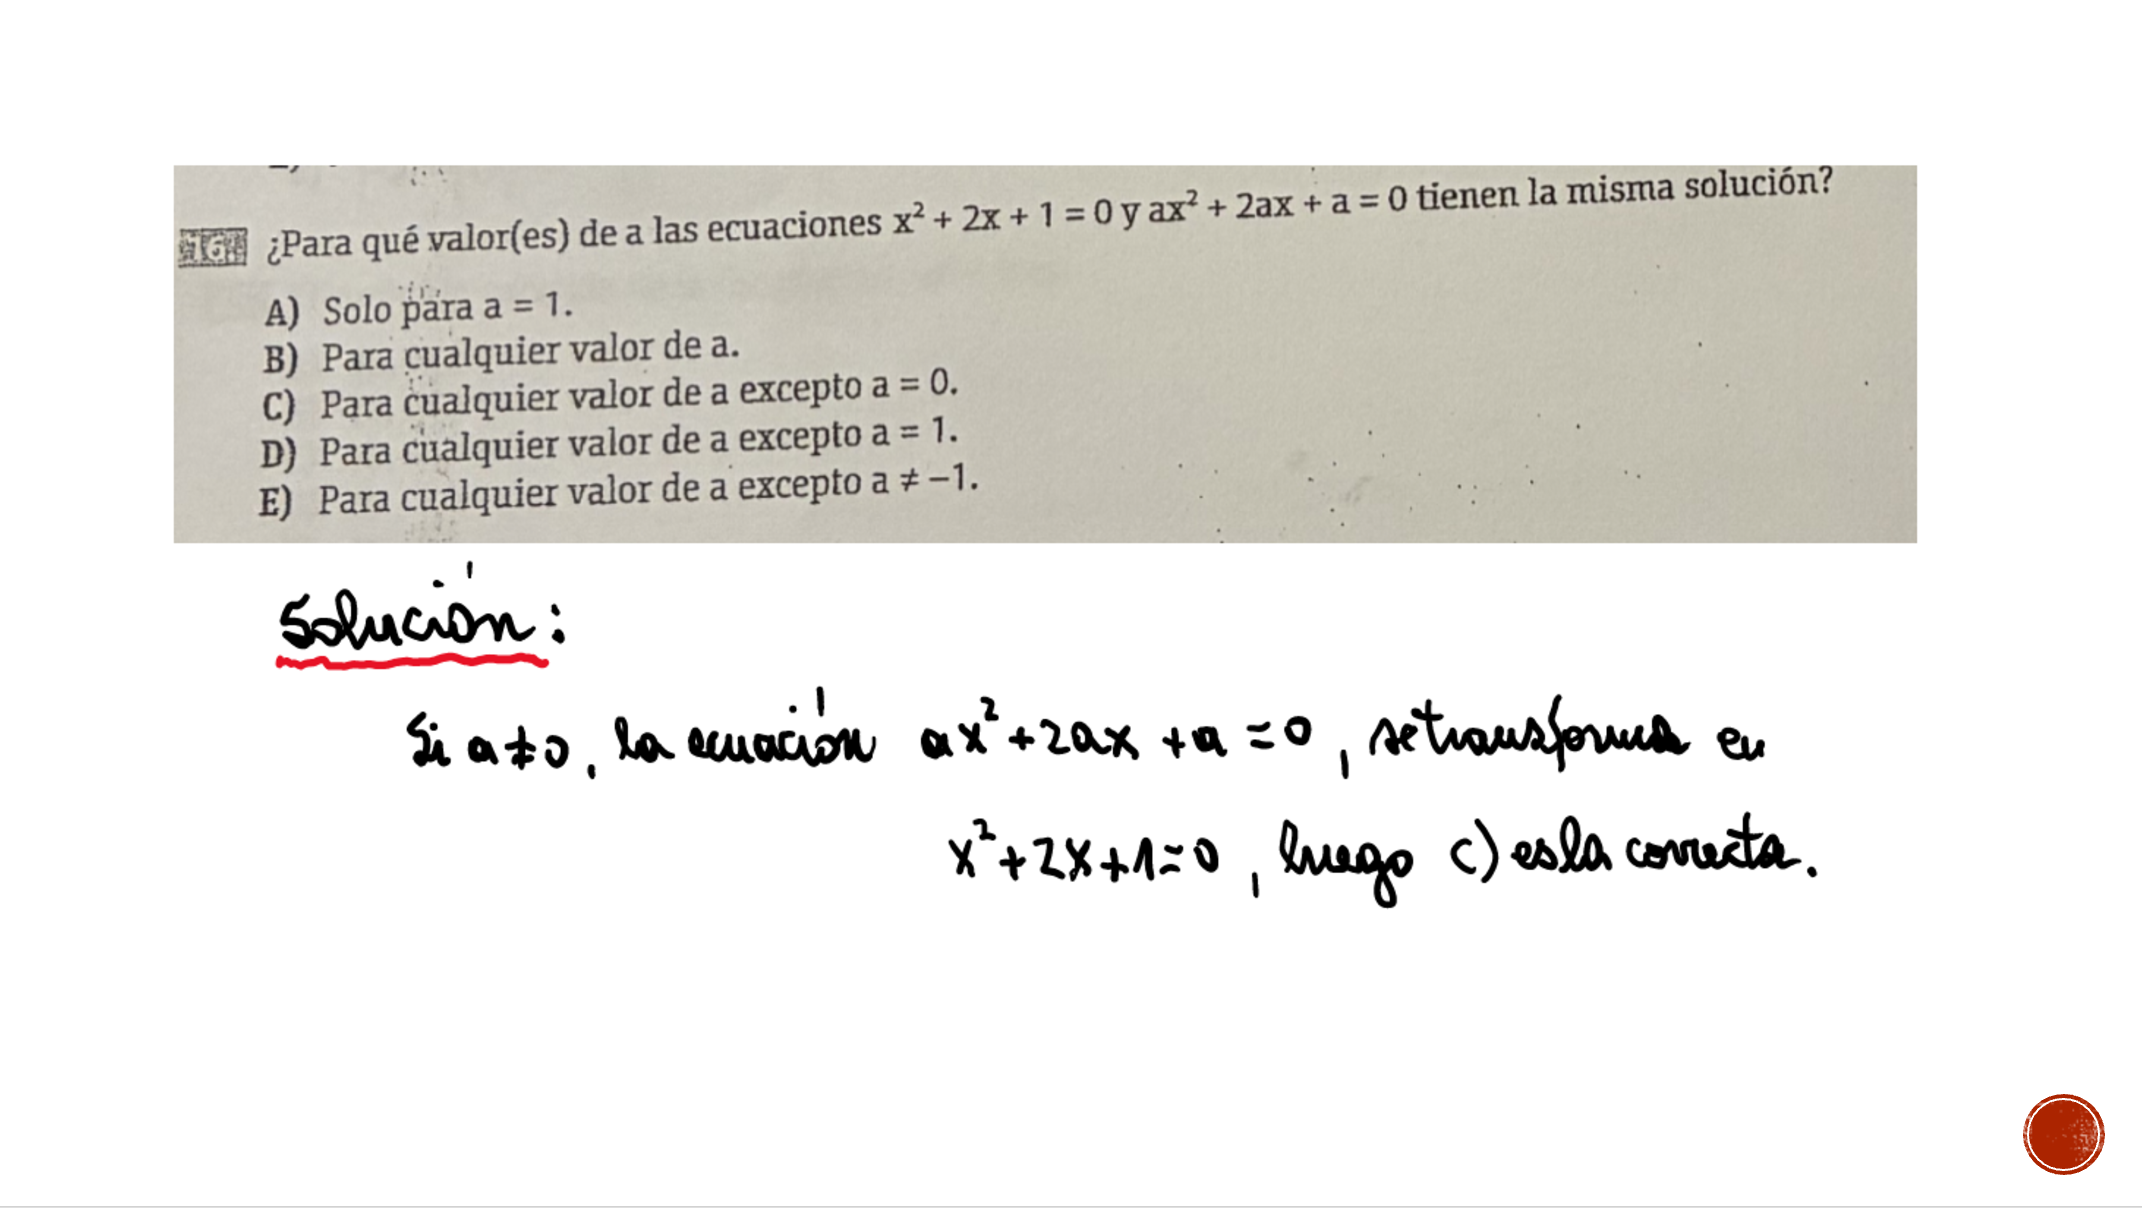 16. ¿Para qué valor(es) de a las ecuaciones x² + 2x + 1 = 0 y ax² + 2ax + a = 0 tienen la misma solución?
A) Solo para a = 1.
B) Para cualquier valor de a.
C) Para cualquier valor de a excepto a = 0.
D) Para cualquier valor de a excepto a = 1.
E) Para cualquier valor de a excepto a ≠ –1.
Solución:
Si a≠0, la ecuación ax²+2ax+a=0, se transforma en
x²+2x+1=0, luego c) es la correcta.